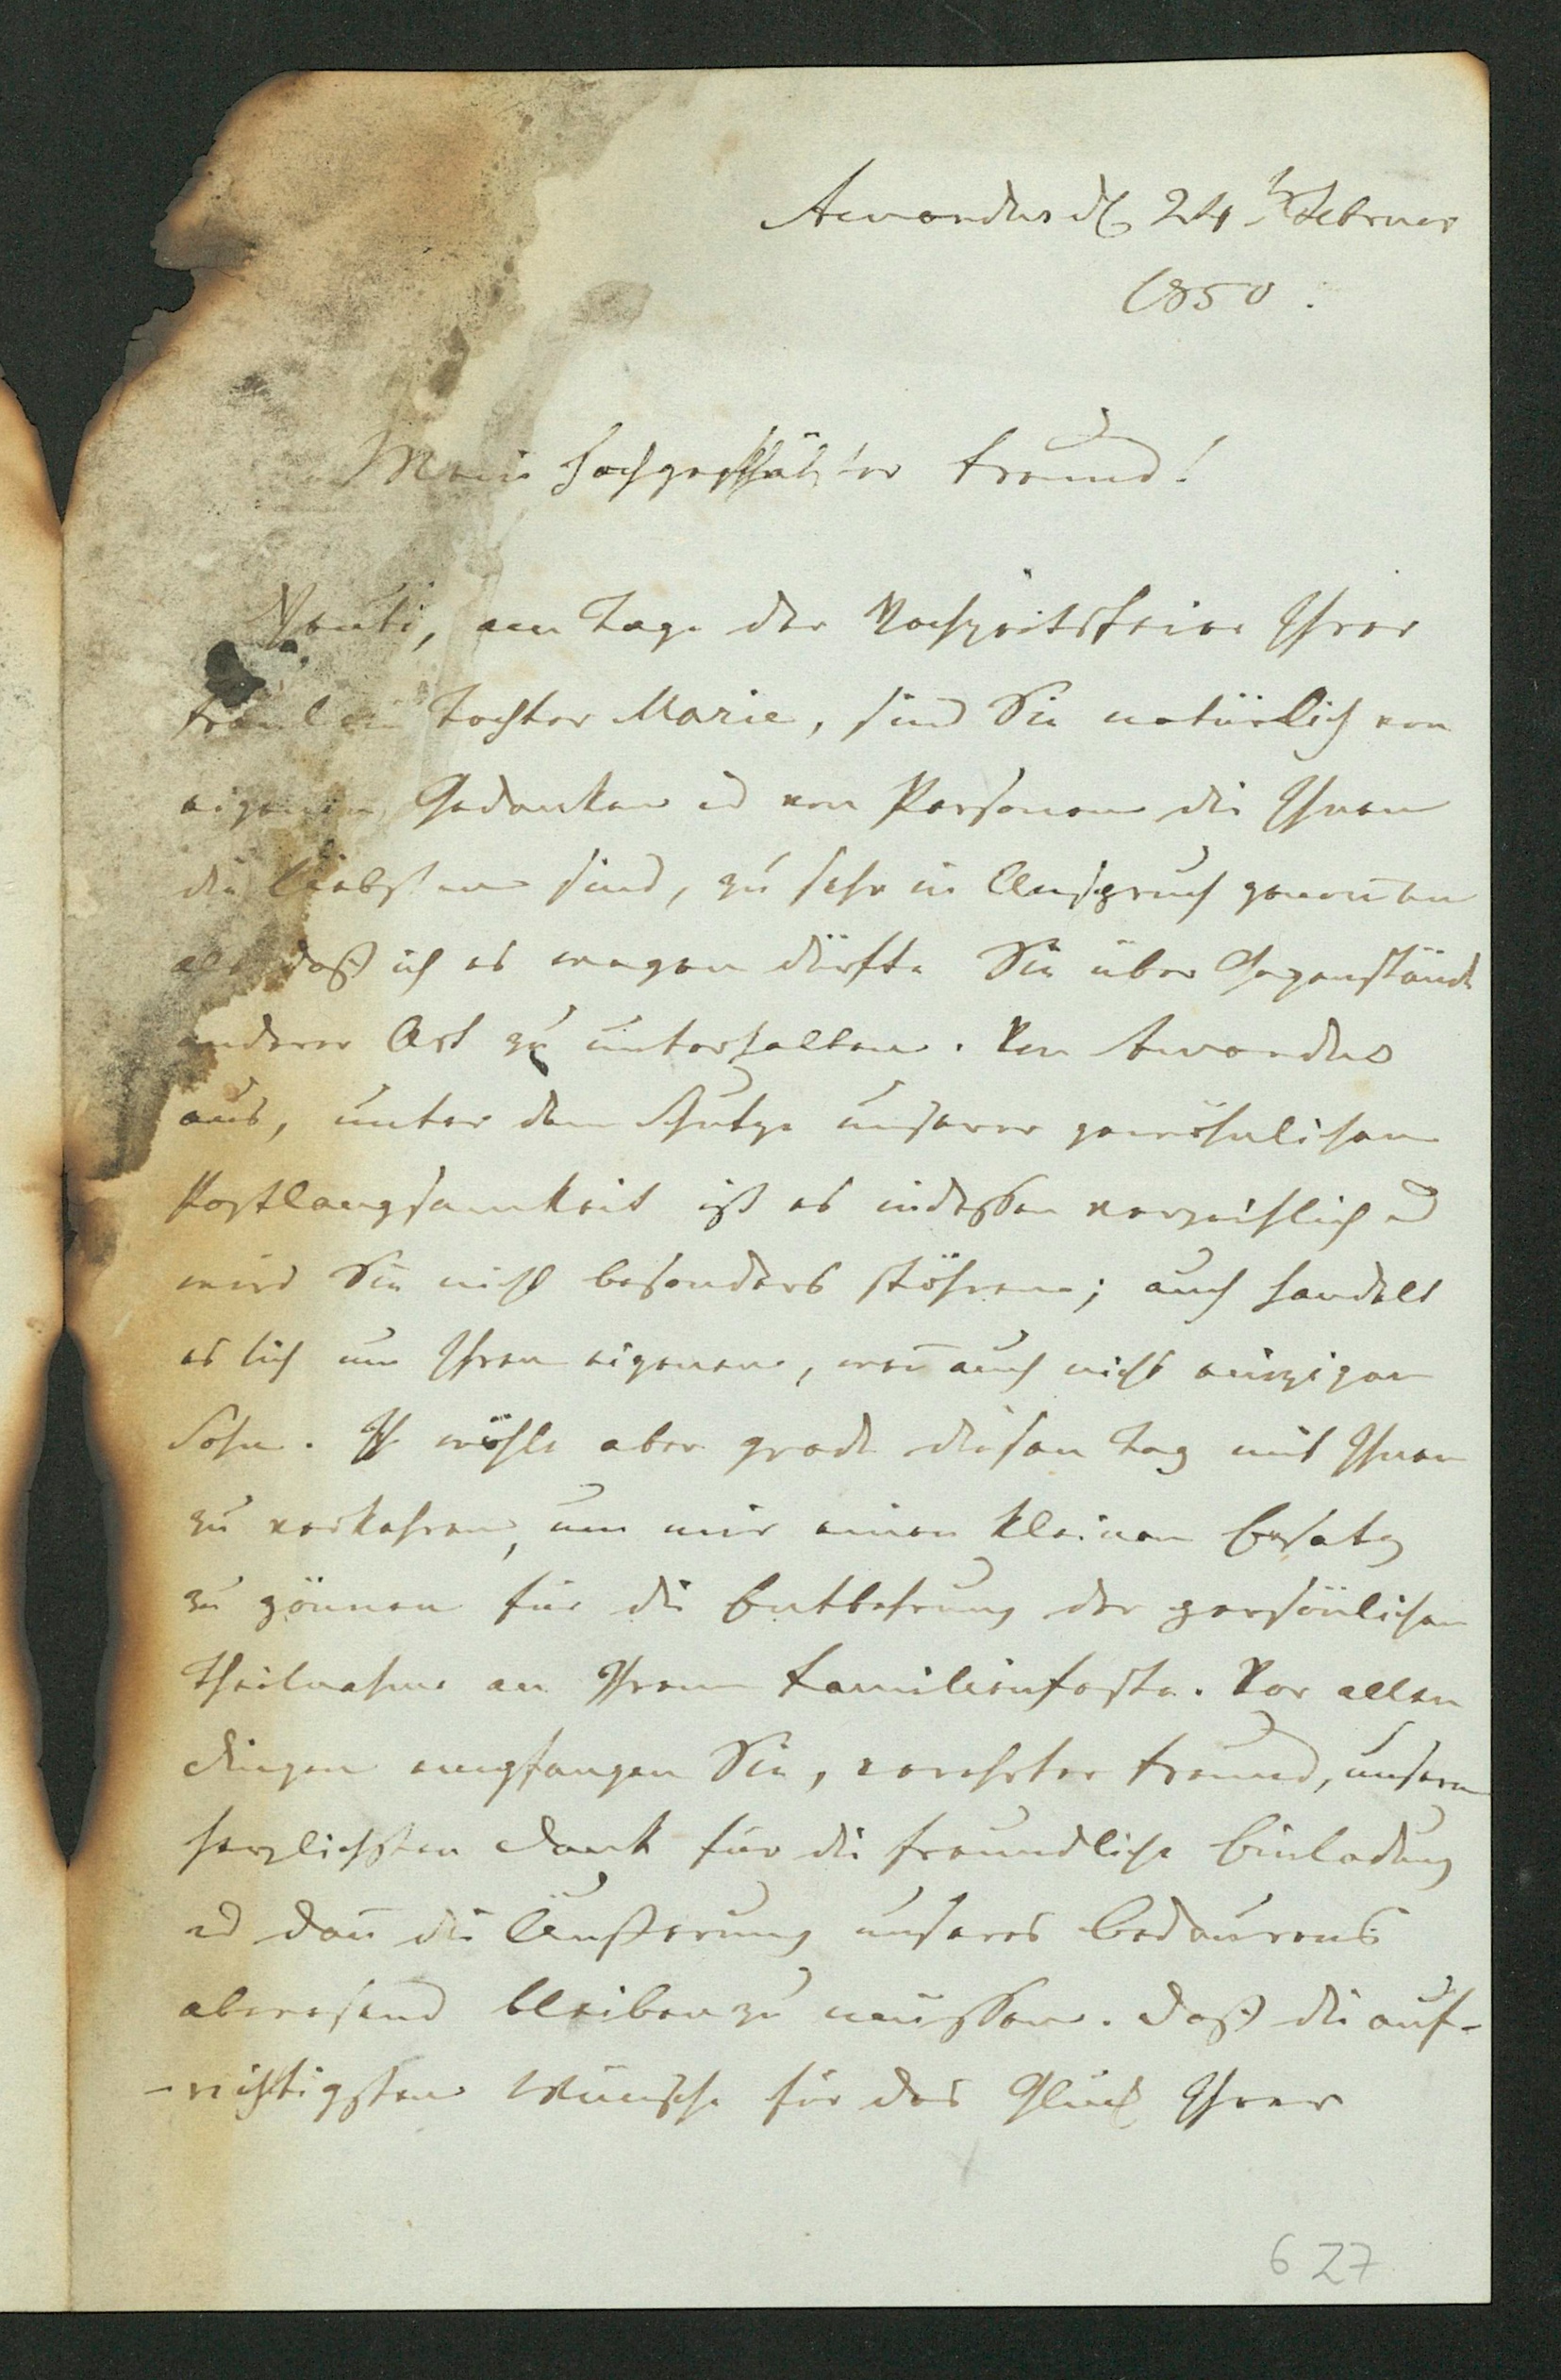 Awandus d 24st Februar
1850.
Mein hochgeschätzter Freund!
Heute, am Tage der Hochzeitsfeier Ihrer
Fräulein Tochter Marie, sind Sie natürlich von
eigenen Gedanken ud von Personen die Ihnen
die liebsten sind, zu sehr in Anspruch genom̄en
als daß ich es wagen dürfte Sie über Gegenstände
anderer Art zu unterhalten. Von Awandus
aus, unter dem Schutze unserer gewöhnlichen
Postlangsamkeit ist es indessen verzeihlich ud
wird Sie nicht besonders stöhren; auch handelt
es sich um Ihren eigenen, wen̄ auch nicht einzigen
Sohn. Ich wähle aber grade diesen Tag mit Ihnen
zu verkehren, um mir einen kleinen Ersatz
zu gönnen für die Entbehrung der persönlichen
Theilnahme an Ihrem Familienfeste. Vor allen
Dingen empfangen Sie, verehrter Freund, unsern
herzlichsten Dank für die freundliche Einladung
ud dan̄ die Äußerung unseres Bedaurens
abwesend bleiben zu müssen. Daß die auf-
-richtigsten Wünsche für das Glück Ihrer
627